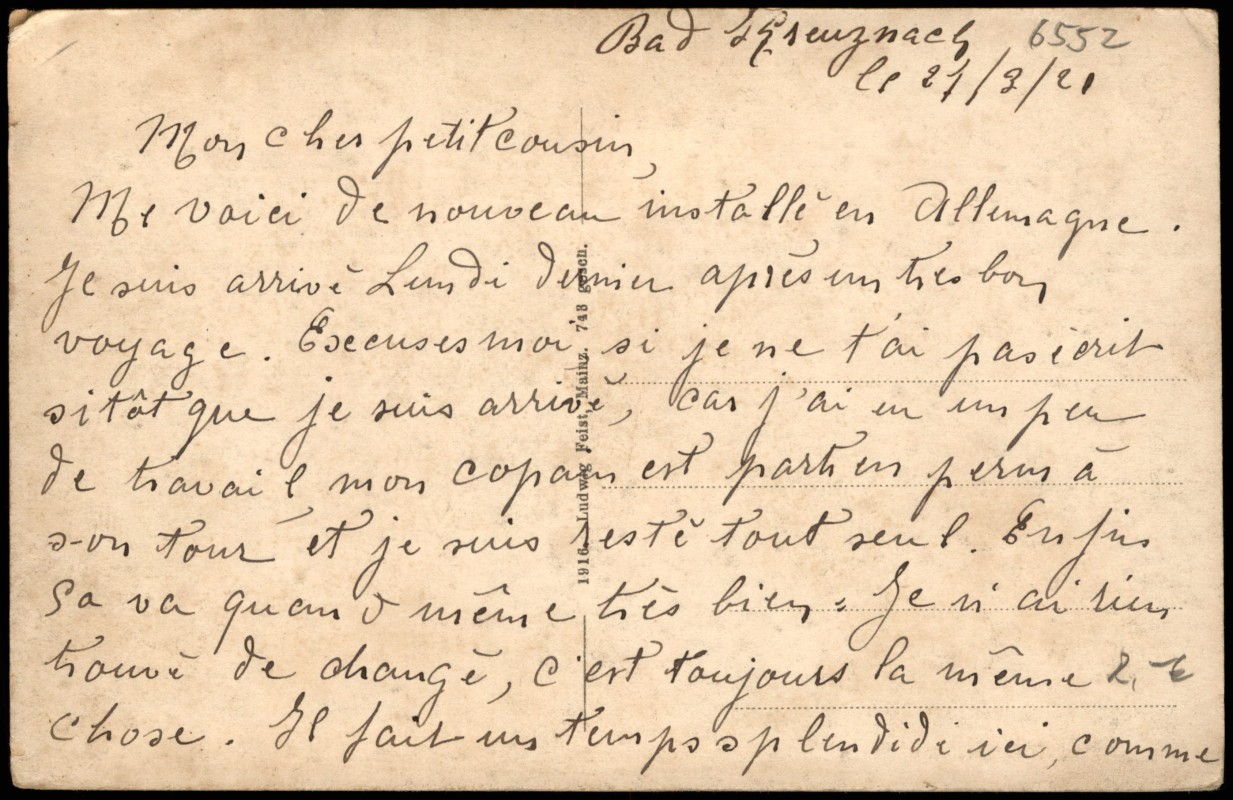 Bad Kreuznach 6552
le 27/3/21
Mon cher petit cousin,
Me voici de nouveau installé en Allemagne.
Je suis arrivé Lundi dernier après un très bon
voyage. Excuses moi si je ne t'ai pas écrit
sitôt que je suis arrivé, car j'ai eu un peu
de travail mon copain est parti en perm à
son tour et je suis resté tout seul. Enfin
ça va quand même très bien. Je n'ai rien
trouvé de changé, c'est toujours la même
chose. Il fait un temps splendide ici, comme
1916 Ludwig Feist, Mainz. 743 gesch.